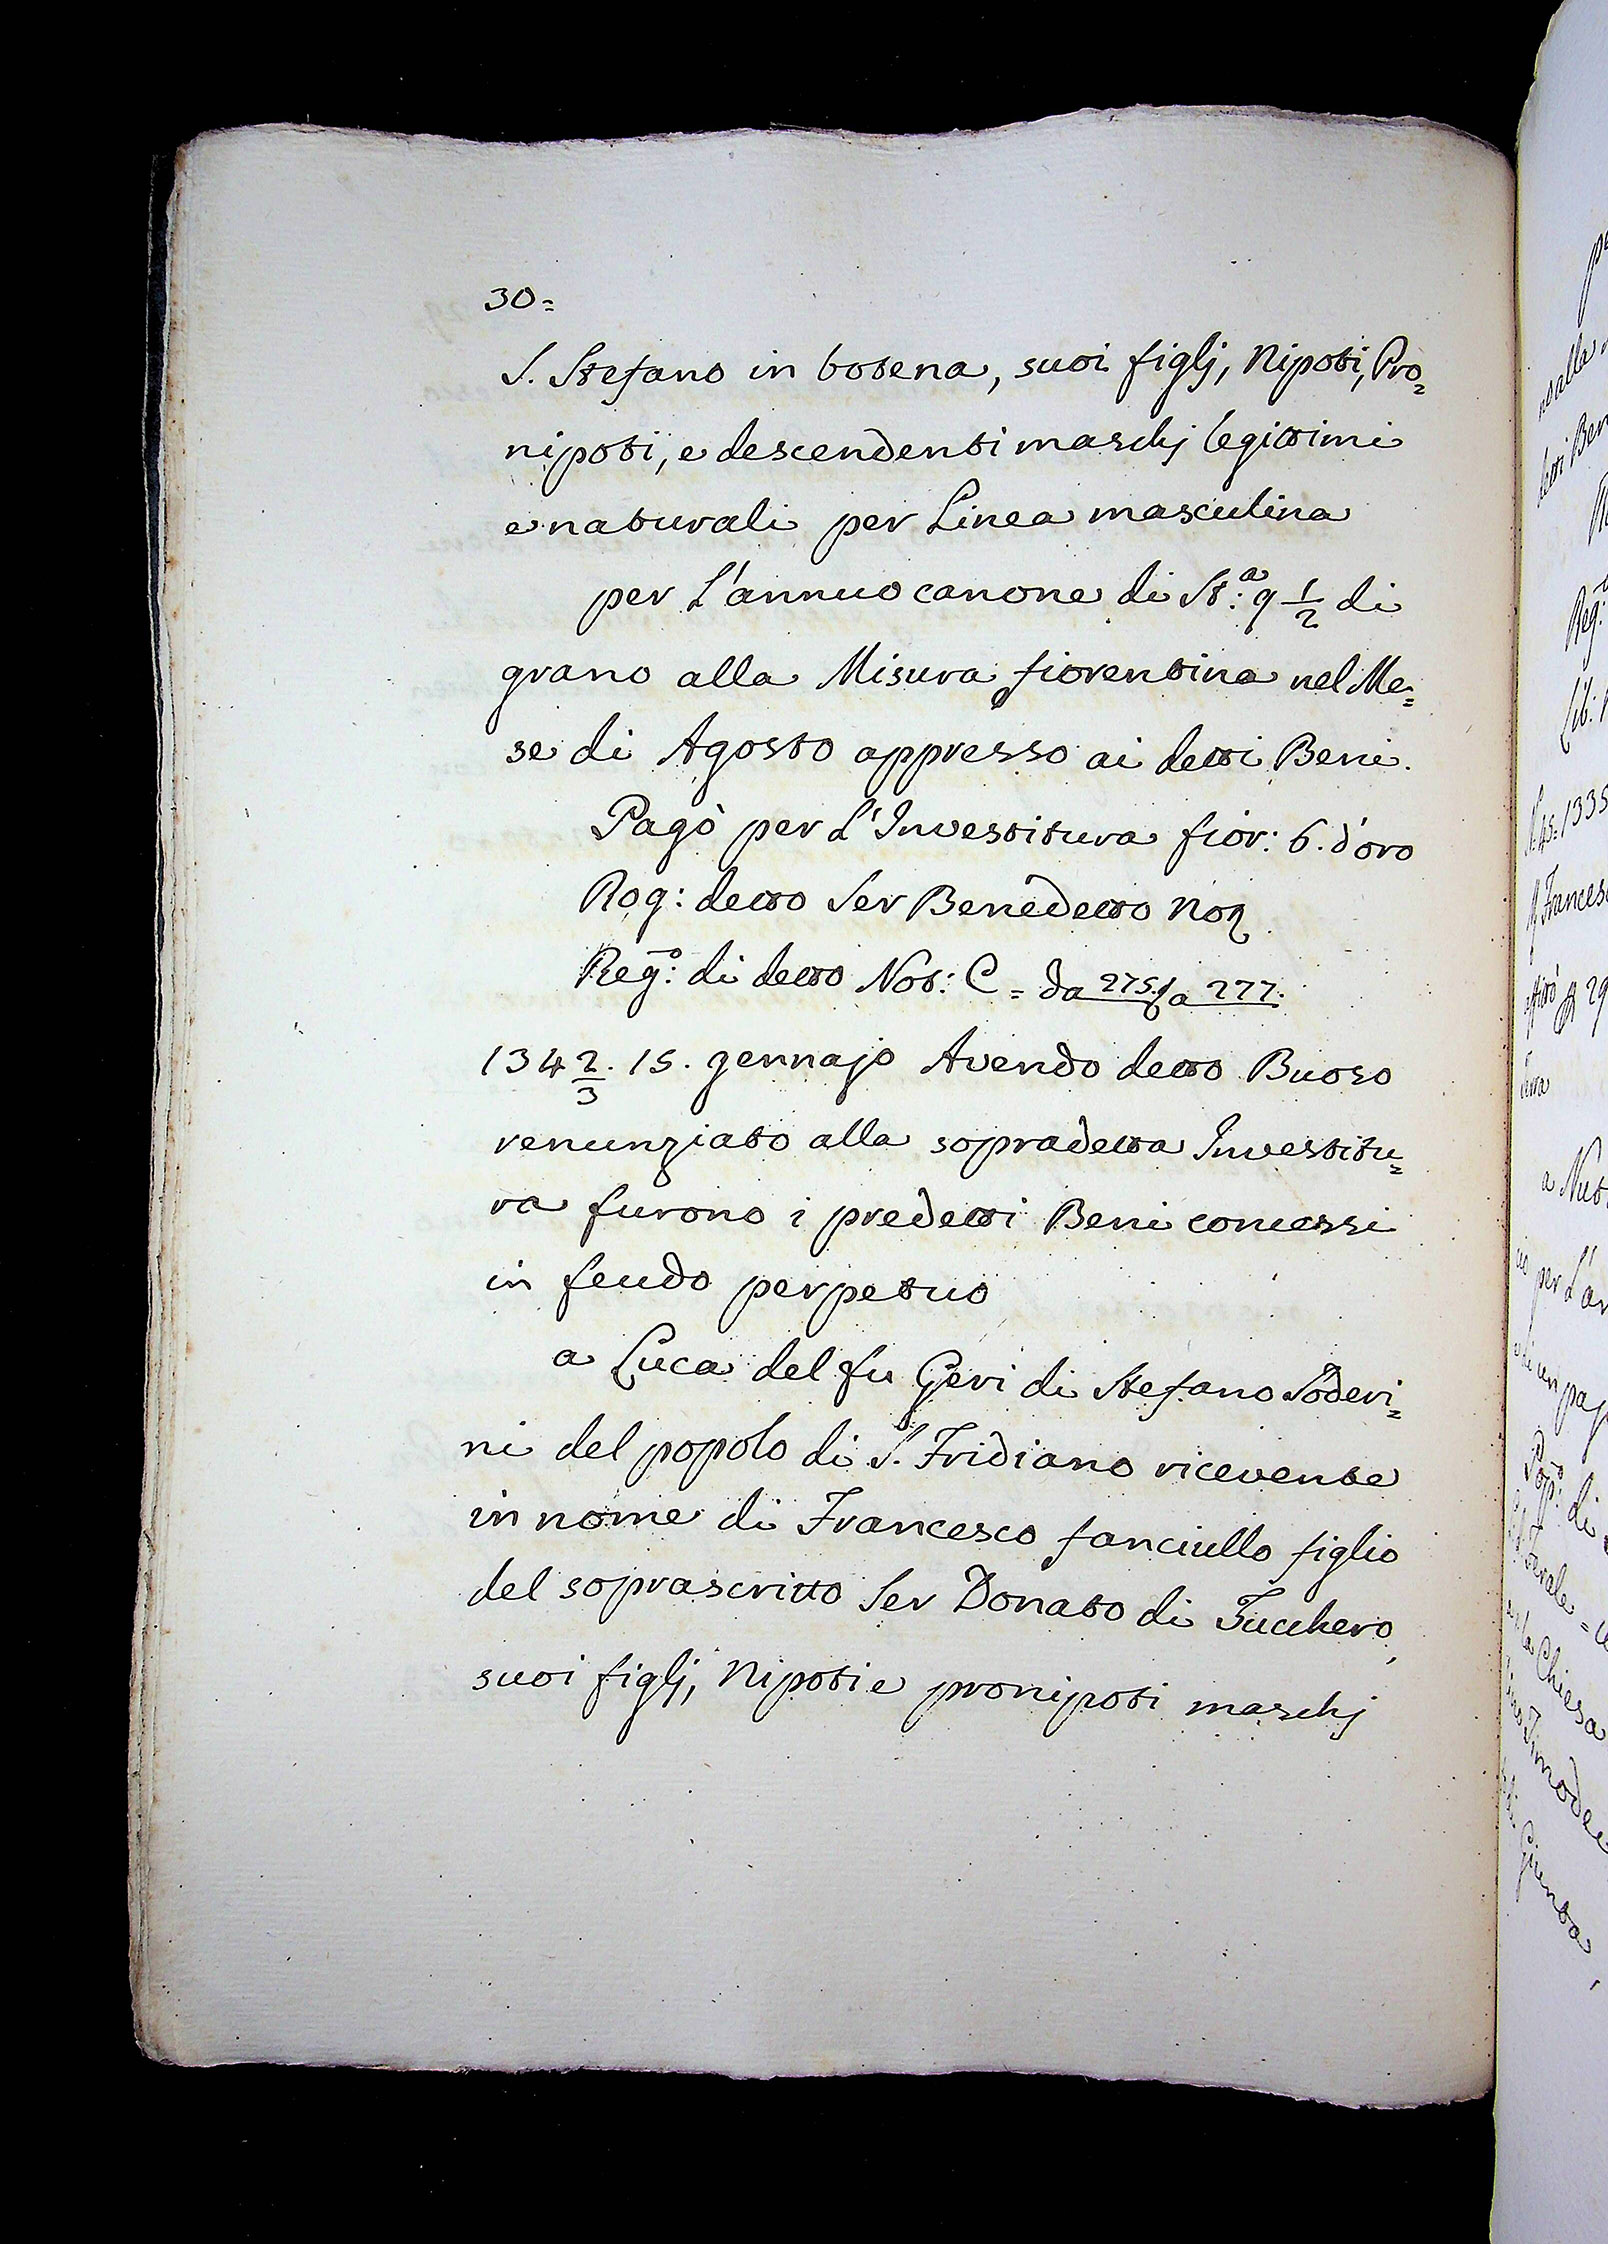 30=
S. Stefano in botena, suoi figlj, Nipoti, Pro=
nipoti, e descendenti maschj legittimi
e naturali per Linea masculina
per L'annuo canone di St:ª 9 1/2 di
grano alla Misura fiorentina nel Me=
se di Agosto appresso ai detti Beni.
Pagò per L'Investitura fior: 6. d'oro
Rog: detto Ser Benedetto Noz
Reg:º di detto Not: C = da 275. a 277.
134 2/3. 15. gennajo Avendo detto Buoso
renunziato alla sopradetta Investitu=
ra furono i predetti Beni concessi
in feudo perpetuo
a Luca del fu Geri di Stefano Soderi=
ni del popolo di S. Fridiano ricevente
in nome di Francesco fanciullo figlio
del soprascritto Ser Donato di Fucchero,
suoi figlj, Nipoti e pronipoti maschj